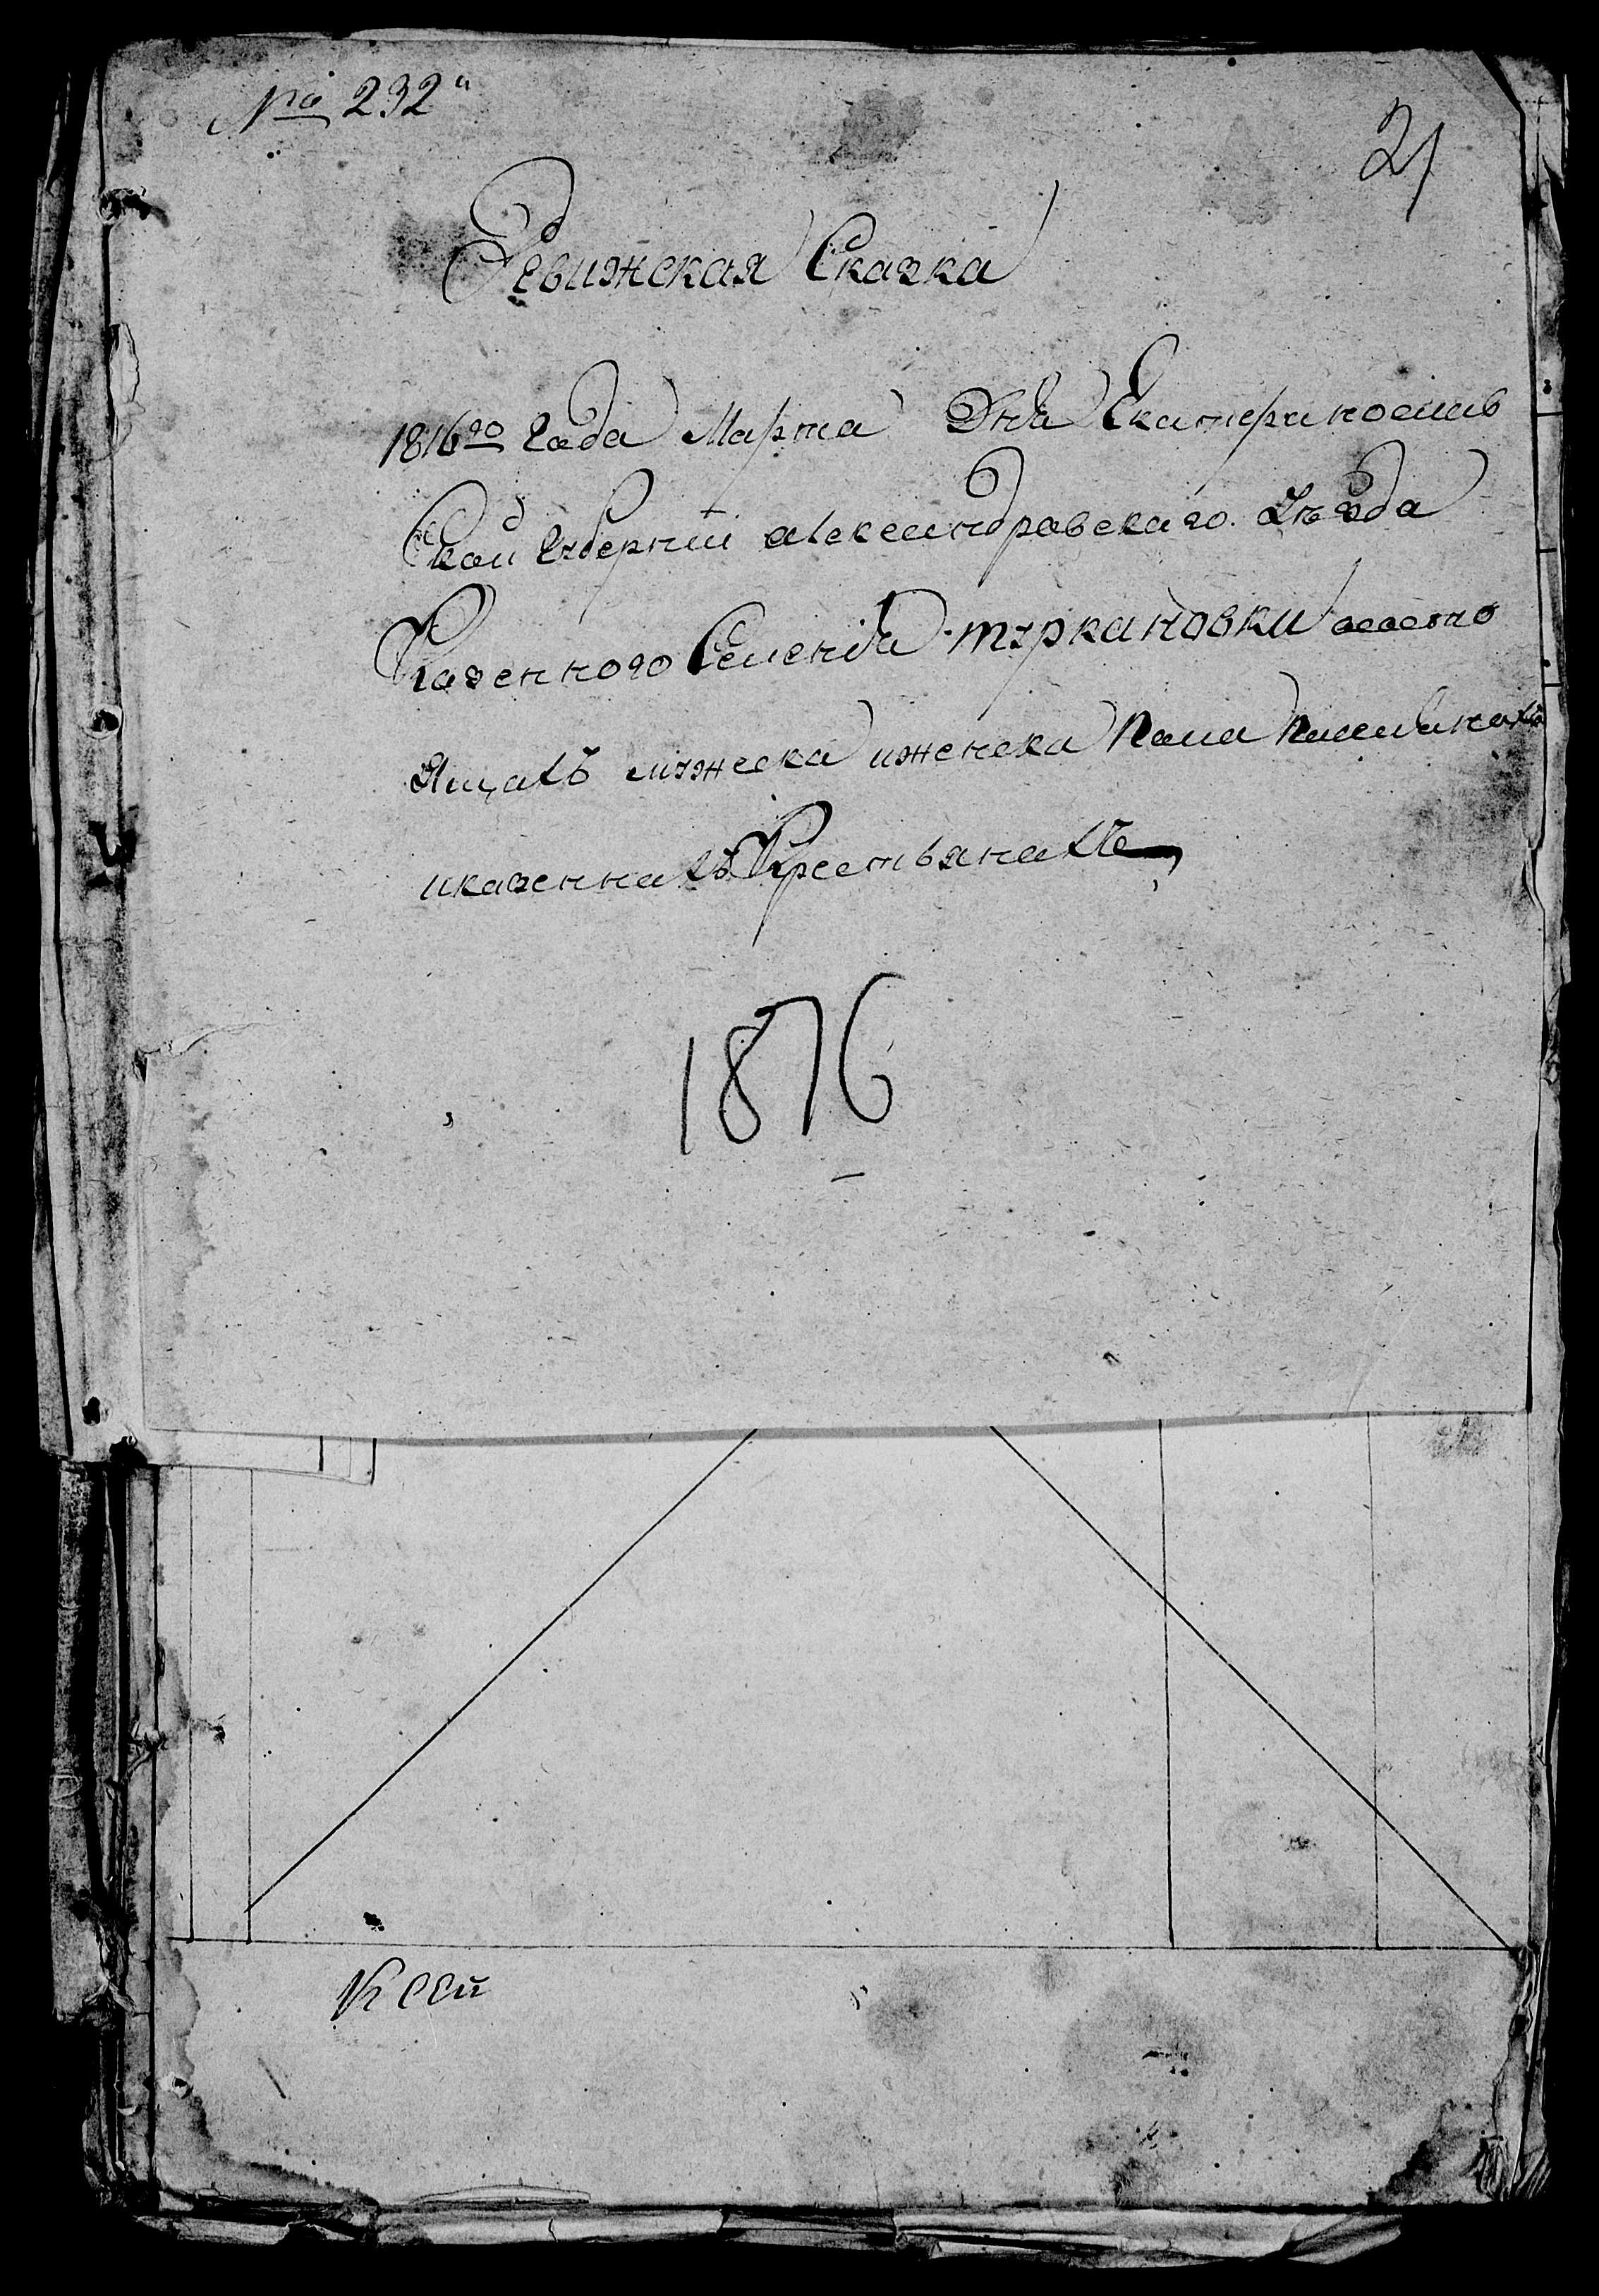 No 232
21
Ревижская Сказка
1816го Года Марта Дня Екатеринослав
Ской Губернии Александровскаго Уѣзда
Казенного Селения Туркановки ососто
ящахъ мужеска и женска пола
и казеннахъ Крестьянахъ
1816